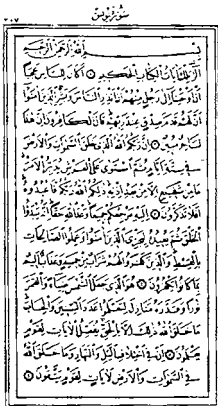 سورة يونس
بسم الله الرحمن الرحيم
الر تلك آيات الكتاب الحكيم ○ أكان للناس عجبا
أن أوحينا إلى رجل منهم أن أنذر الناس وبشر الذين آمنوا
أن لهم قدم صدق عند ربهم قال الكافرون إن هذا
لساحر مبين ○ إن ربكم الله الذي خلق السموات والأرض
في ستة أيام ثم استوى على العرش يدبر الأمر
ما من شفيع إلا من بعد إذنه ذلكم الله ربكم فاعبدوه
أفلا تذكرون ○ إليه مرجعكم جميعا وعد الله حقا إنه يبدؤا
الخلق ثم يعيده ليجزي الذين آمنوا وعملوا الصالحات
بالقسط والذين كفروا لهم شراب من حميم وعذاب أليم
بما كانوا يكفرون ○ هو الذي جعل الشمس ضياء والقمر
نورا وقدره منازل لتعلموا عدد السنين والحساب
ما خلق الله ذلك إلا بالحق يفصل الآيات لقوم
يعلمون ○ إن في اختلاف الليل والنهار وما خلق الله
في السموات والأرض لآيات لقوم يتقون ○